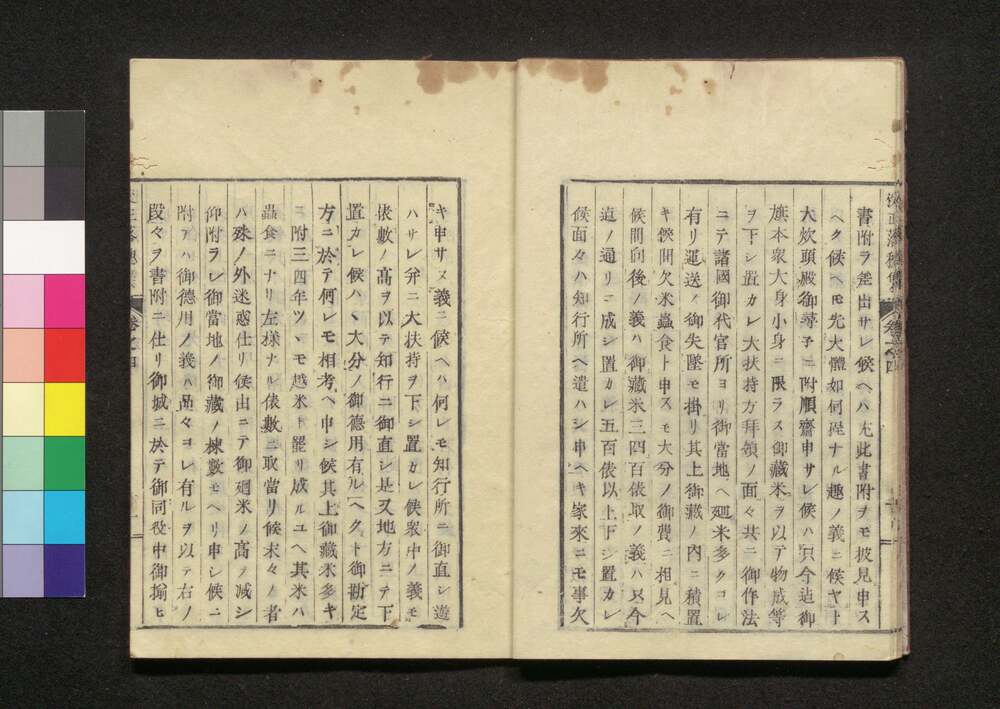 書附ヲ差出サレ候ヘハ尤此書附ヲモ披見申ス
ヘク候ヘモ先大體如何程ナル趣ノ義ニ候ヤト
大炊頭殿御尋子ニ附順齋申サレ候ハ只今迄御
旗本衆大身小身ニ限ラス御藏米ヲ以テ物成等
ヲ下シ置カレ大扶持方拜領ノ面々共ニ御作法
ニテ諸國御代官所ヨリ御當地ヘ廻米多クコレ
有リ運送ノ御失墜モ掛リ其上御藏ノ内ニ積置
キ候間欠米蟲食ト申スモ大分ノ御費ニ相見ヘ
候間向後ノ義ハ御藏米三四百俵取ノ義ハ只今
迄ノ通リニ成シ置カレ五百俵以上下シ置カレ
候面々ハ知行所ヘ遣ハシ申ヘキ家來ニモ事欠
キ申サヌ義ニ候ヘハ何レモ知行所ニ御直シ遊
ハサレ并ニ大扶持ヲ下シ置カレ候衆中ノ義モ
俵數ノ高ヲ以テ知行ニ御直シ是又地方ニテ下
置カレ候ハヽ大分ノ御德用有ルヘクト御勘定
方ニ於テ何レモ相考ヘ申シ候其上御藏米多キ
ニ附三四年ツヽモ越米ト罷リ成ルユヘ其米ハ
蟲食ニナリ左樣ナル俵數ニ取當リ候末々ノ者
ハ殊ノ外迷惑仕リ候由ニテ御廻米ノ高ヲ減シ
仰附ラレ御當地ノ御藏ノ棟數モヘリ申シ候ニ
附テハ御德用ノ義ハ品々コレ有ルヲ以テ右ノ
段々ヲ書附ニ仕リ御城ニ於テ御同役中御揃ヒ
卷之四